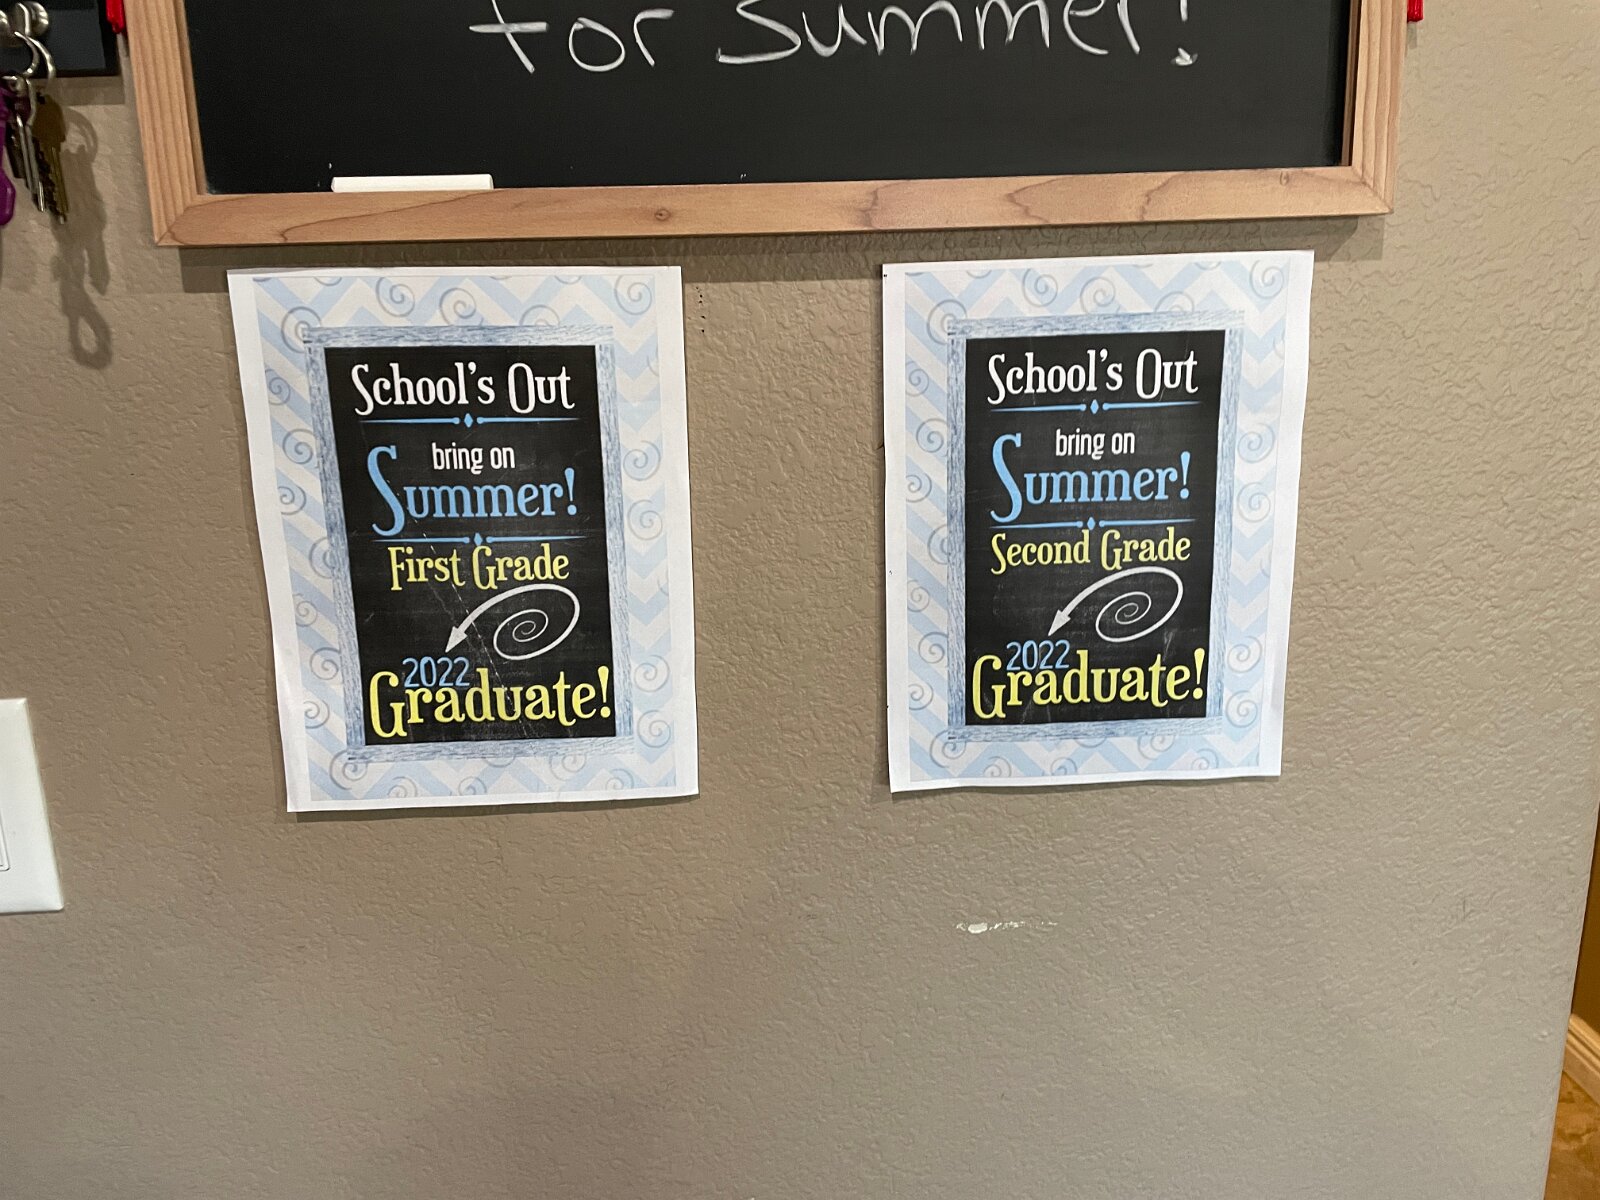 for Summer!
School's Out
bring on
Summer!
First Grade
2022
Graduate!
School's Out
bring on
Summer!
Second Grade
2022
Graduate!